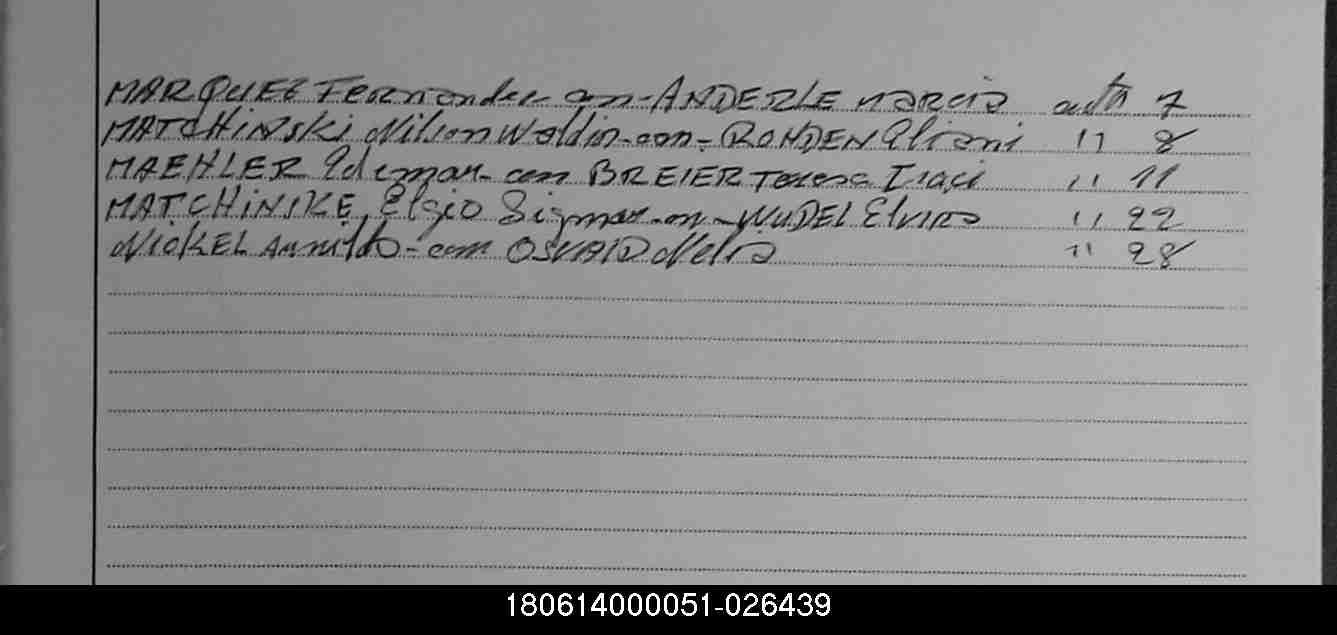 MARQUEZ Fernandes con-ANDERLE MARCIA acta 7
MATCHINSKI Nilson Waldir-con-ROHDEN Eliani " 8
MAEHLER Edemar-con BREIER Teresa Iraci " 11
MATCHINSKE, Elgio Sigmar-con-WUDEL Elvira " 22
NICKEL Arnildo-com OSVALD Nelsa " 28
180614000051-026439